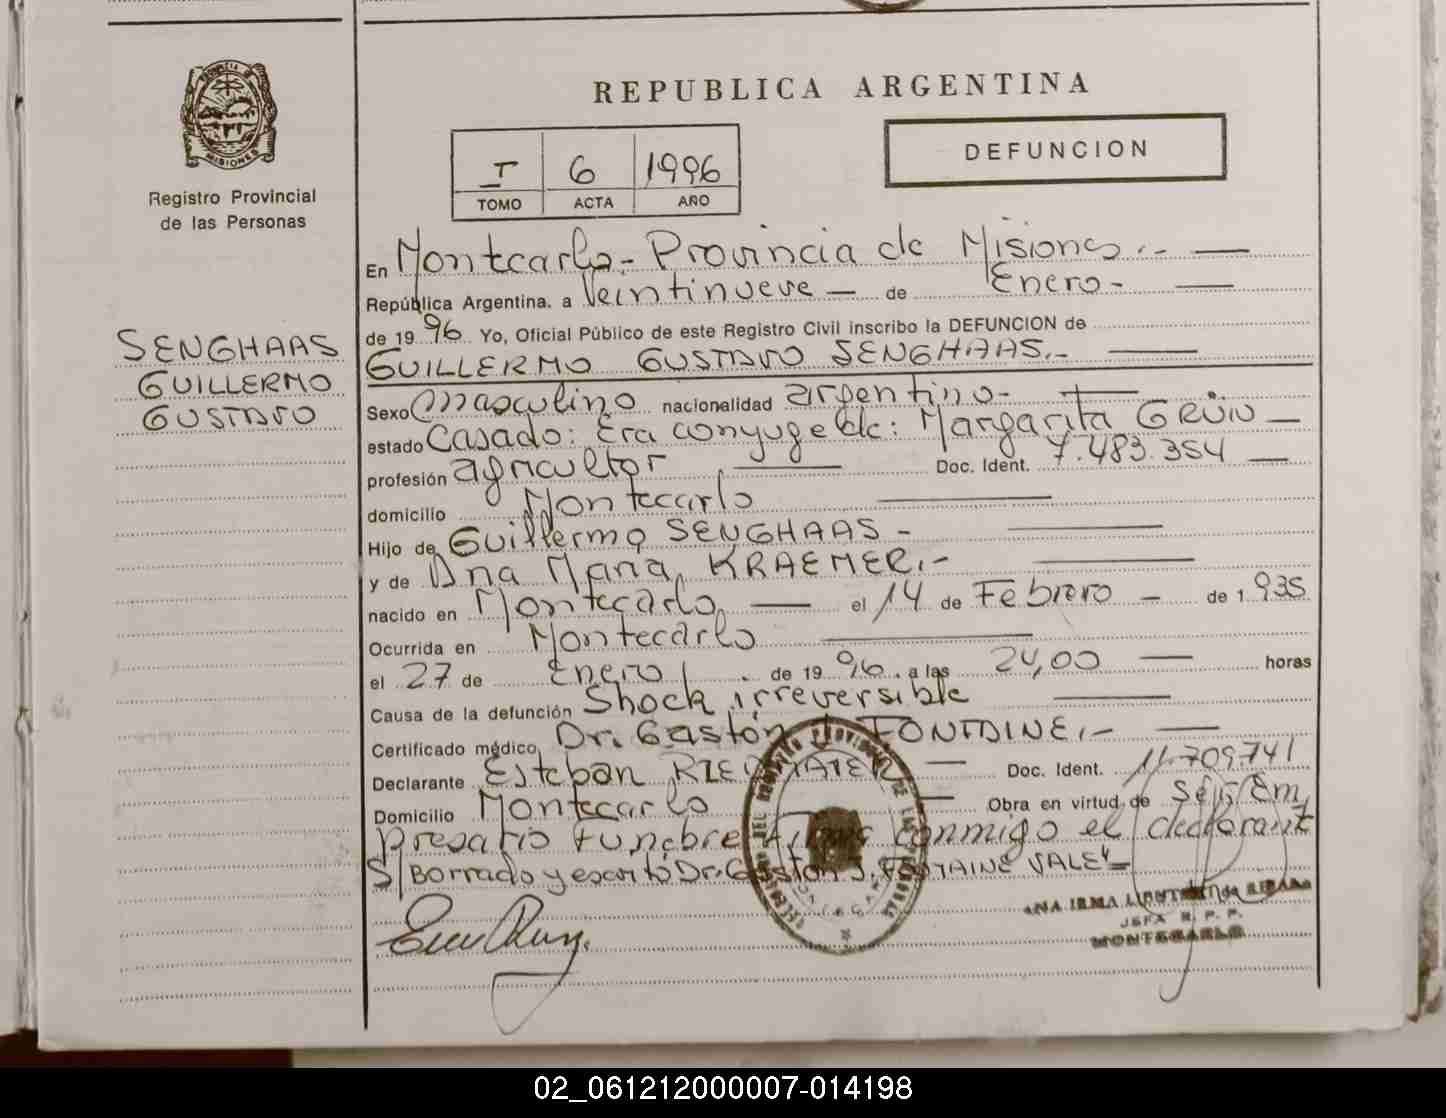 PROVINCIA DE
MISIONES
Registro Provincial
de las Personas
SENGHAAS
GUILLERMO
GUSTAVO
REPUBLICA ARGENTINA
I 6 1996
TOMO ACTA AÑO
DEFUNCION
En Montecarlo.- Provincia de Misiones.- —
República Argentina. a Veintinueve — de Enero- —
de 19 96 Yo, Oficial Público de este Registro Civil inscribo la DEFUNCION de
GUILLERMO GUSTAVO SENGHAAS.- —
Sexo masculino nacionalidad argentino- —
estado Casado: Era conyuge de: Margarita GRÜN —
profesión agricultor — Doc. Ident. 7.483.354 —
domicilio Montecarlo —
Hijo de Guillermo SENGHAAS - —
y de Ana Maria KRAEMER.- —
nacido en Montecarlo — el 14 de Febrero — de 1.935
Ocurrida en Montecarlo —
el 27 de Enero de 19 96 a las 24,00 — horas
Causa de la defunción Shock irreversible —
Certificado médico Dr. Gastón J. FONTAINE.- —
Declarante Esteban — Doc. Ident. 11.709.741
Domicilio Montecarlo — Obra en virtud de Ser Em
presario Funebre firma conmigo el declarante
S/Borrado y escrito Dr. Gaston J. FONTAINE VALE" =
ANA IRMA
JEFA R. P. P.
MONTECARLO
02_061212000007-014198